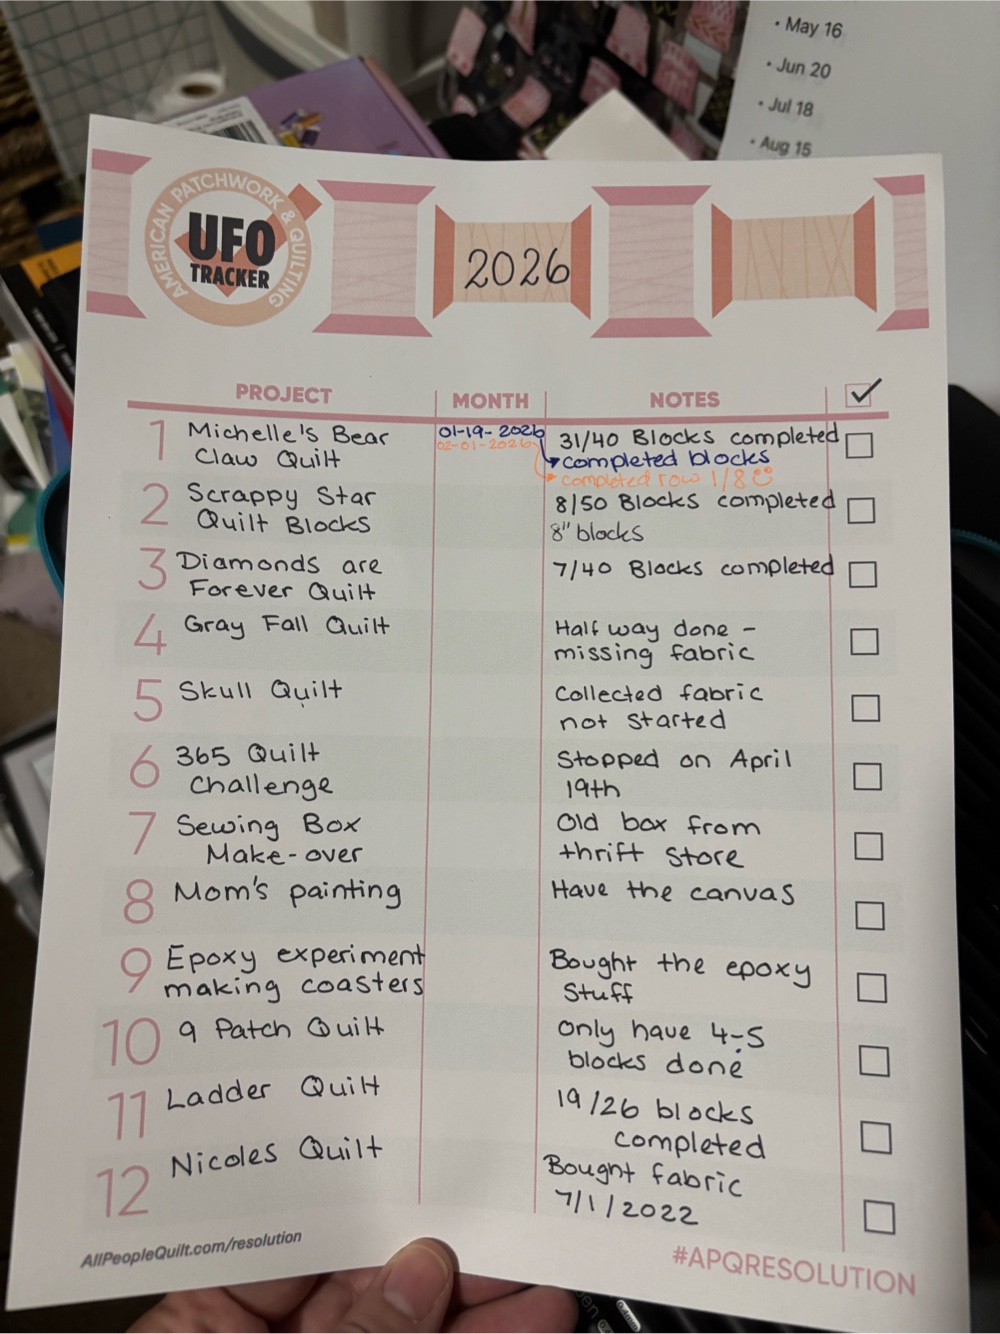 • May 16
• Jun 20
• Jul 18
• Aug 15
AMERICAN PATCHWORK & QUILTING
UFO
TRACKER
2026
PROJECT MONTH NOTES
1 Michelle's Bear Claw Quilt
01-19-2026
02-01-2026
31/40 Blocks completed
completed blocks
completed row 1/8
2 Scrappy Star
Quilt Blocks
8/50 Blocks completed
8" blocks
3 Diamonds are
Forever Quilt
7/40 Blocks completed
4 Gray Fall Quilt
Half way done -
missing fabric
5 Skull Quilt
Collected fabric
not started
6 365 Quilt
Challenge
Stopped on April
19th
7 Sewing Box
Make-over
Old box from
thrift store
8 Mom's painting
Have the canvas
9 Epoxy experiment
making coasters
Bought the epoxy
stuff
10 9 Patch Quilt
Only have 4-5
blocks done
11 Ladder Quilt
19/26 blocks
completed
12 Nicoles Quilt
Bought fabric
7/1/2022
AllPeopleQuilt.com/resolution
#APQRESOLUTION